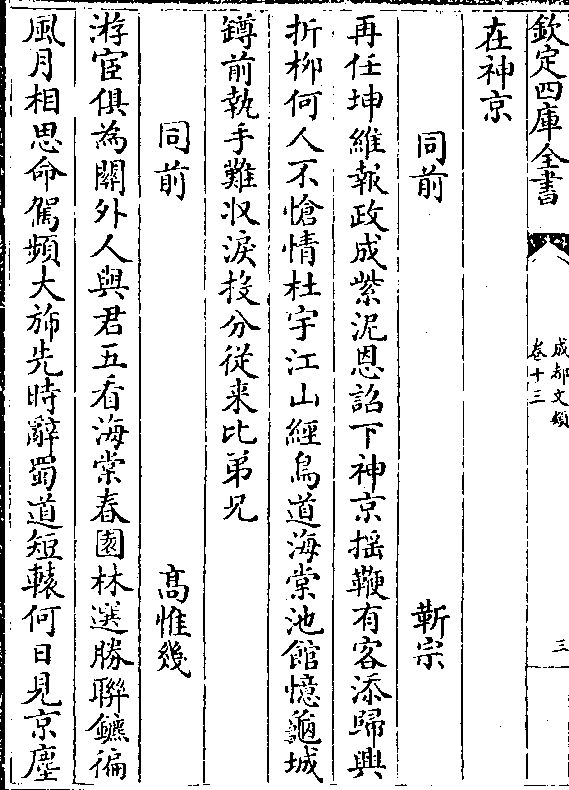 欽定四庫全書
成都文類
卷十三
三
在神京
同前 靳宗
再任坤維報政成紫泥恩詔下神京揺鞭有客添歸興
折柳何人不愴情杜宇江山經鳥道海棠池館憶龜城
罇前執手難収淚投分從来比弟兄
同前 髙惟幾
游宦俱為關外人與君五看海棠春園林選勝聯鑣徧
風月相思命駕頻大斾先時辭蜀道短轅何日見京塵